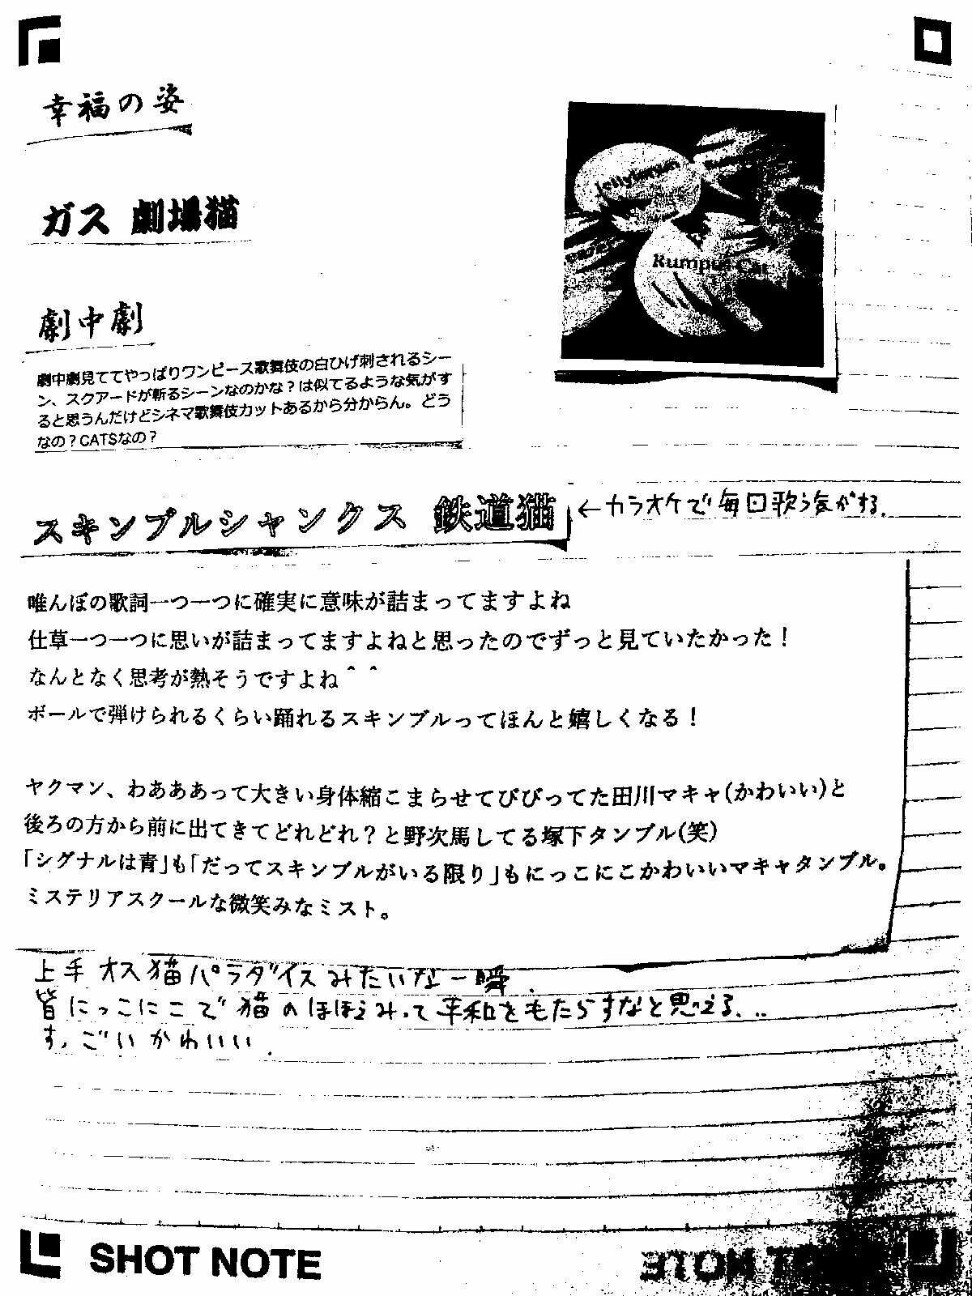 幸福の姿
Jellylorum
Rumpus Cat
ガス 劇場猫
劇中劇
劇中劇見ててやっぱりワンピース歌舞伎の白ひげ刺されるシー
ン、スクアードが斬るシーンなのかな？は似てるような気がす
ると思うんだけどシネマ歌舞伎カットあるから分からん。どう
なの？CATSなの？
スキンブルシャンクス 鉄道猫 ←カラオケで毎回歌う気がする.
唯んぼの歌詞一つ一つに確実に意味が詰まってますよね
仕草一つ一つに思いが詰まってますよねと思ったのでずっと見ていたかった！
なんとなく思考が熱そうですよね＾＾
ボールで弾けられるくらい踊れるスキンブルってほんと嬉しくなる！
ヤクマン、わあああって大きい身体縮こまらせてびびってた田川マキャ(かわいい)と
後ろの方から前に出てきてどれどれ？と野次馬してる塚下タンブル(笑)
「シグナルは青」も「だってスキンブルがいる限り」もにっこにこかわいいマキャタンブル。
ミステリアスクールな微笑みなミスト。
上手 オス猫パラダイスみたいな一瞬.
皆にっこにこで猫のほほえみって平和をもたらすなと思える...
すっごいかわいい.
SHOT NOTE